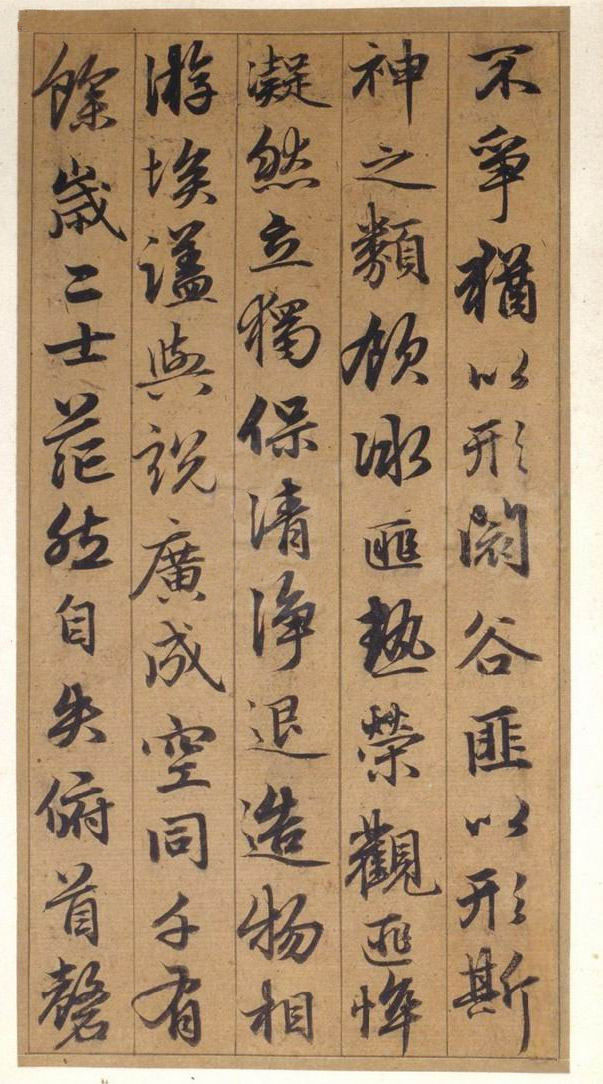 不爭猶以形閡谷匪以形斯
神之類飲冰匪熱榮觀匪惸
凝然立獨保清淨退造物相
游埃𡏖與説廣成空同千有
餘歲二士茫然自失俯首磬